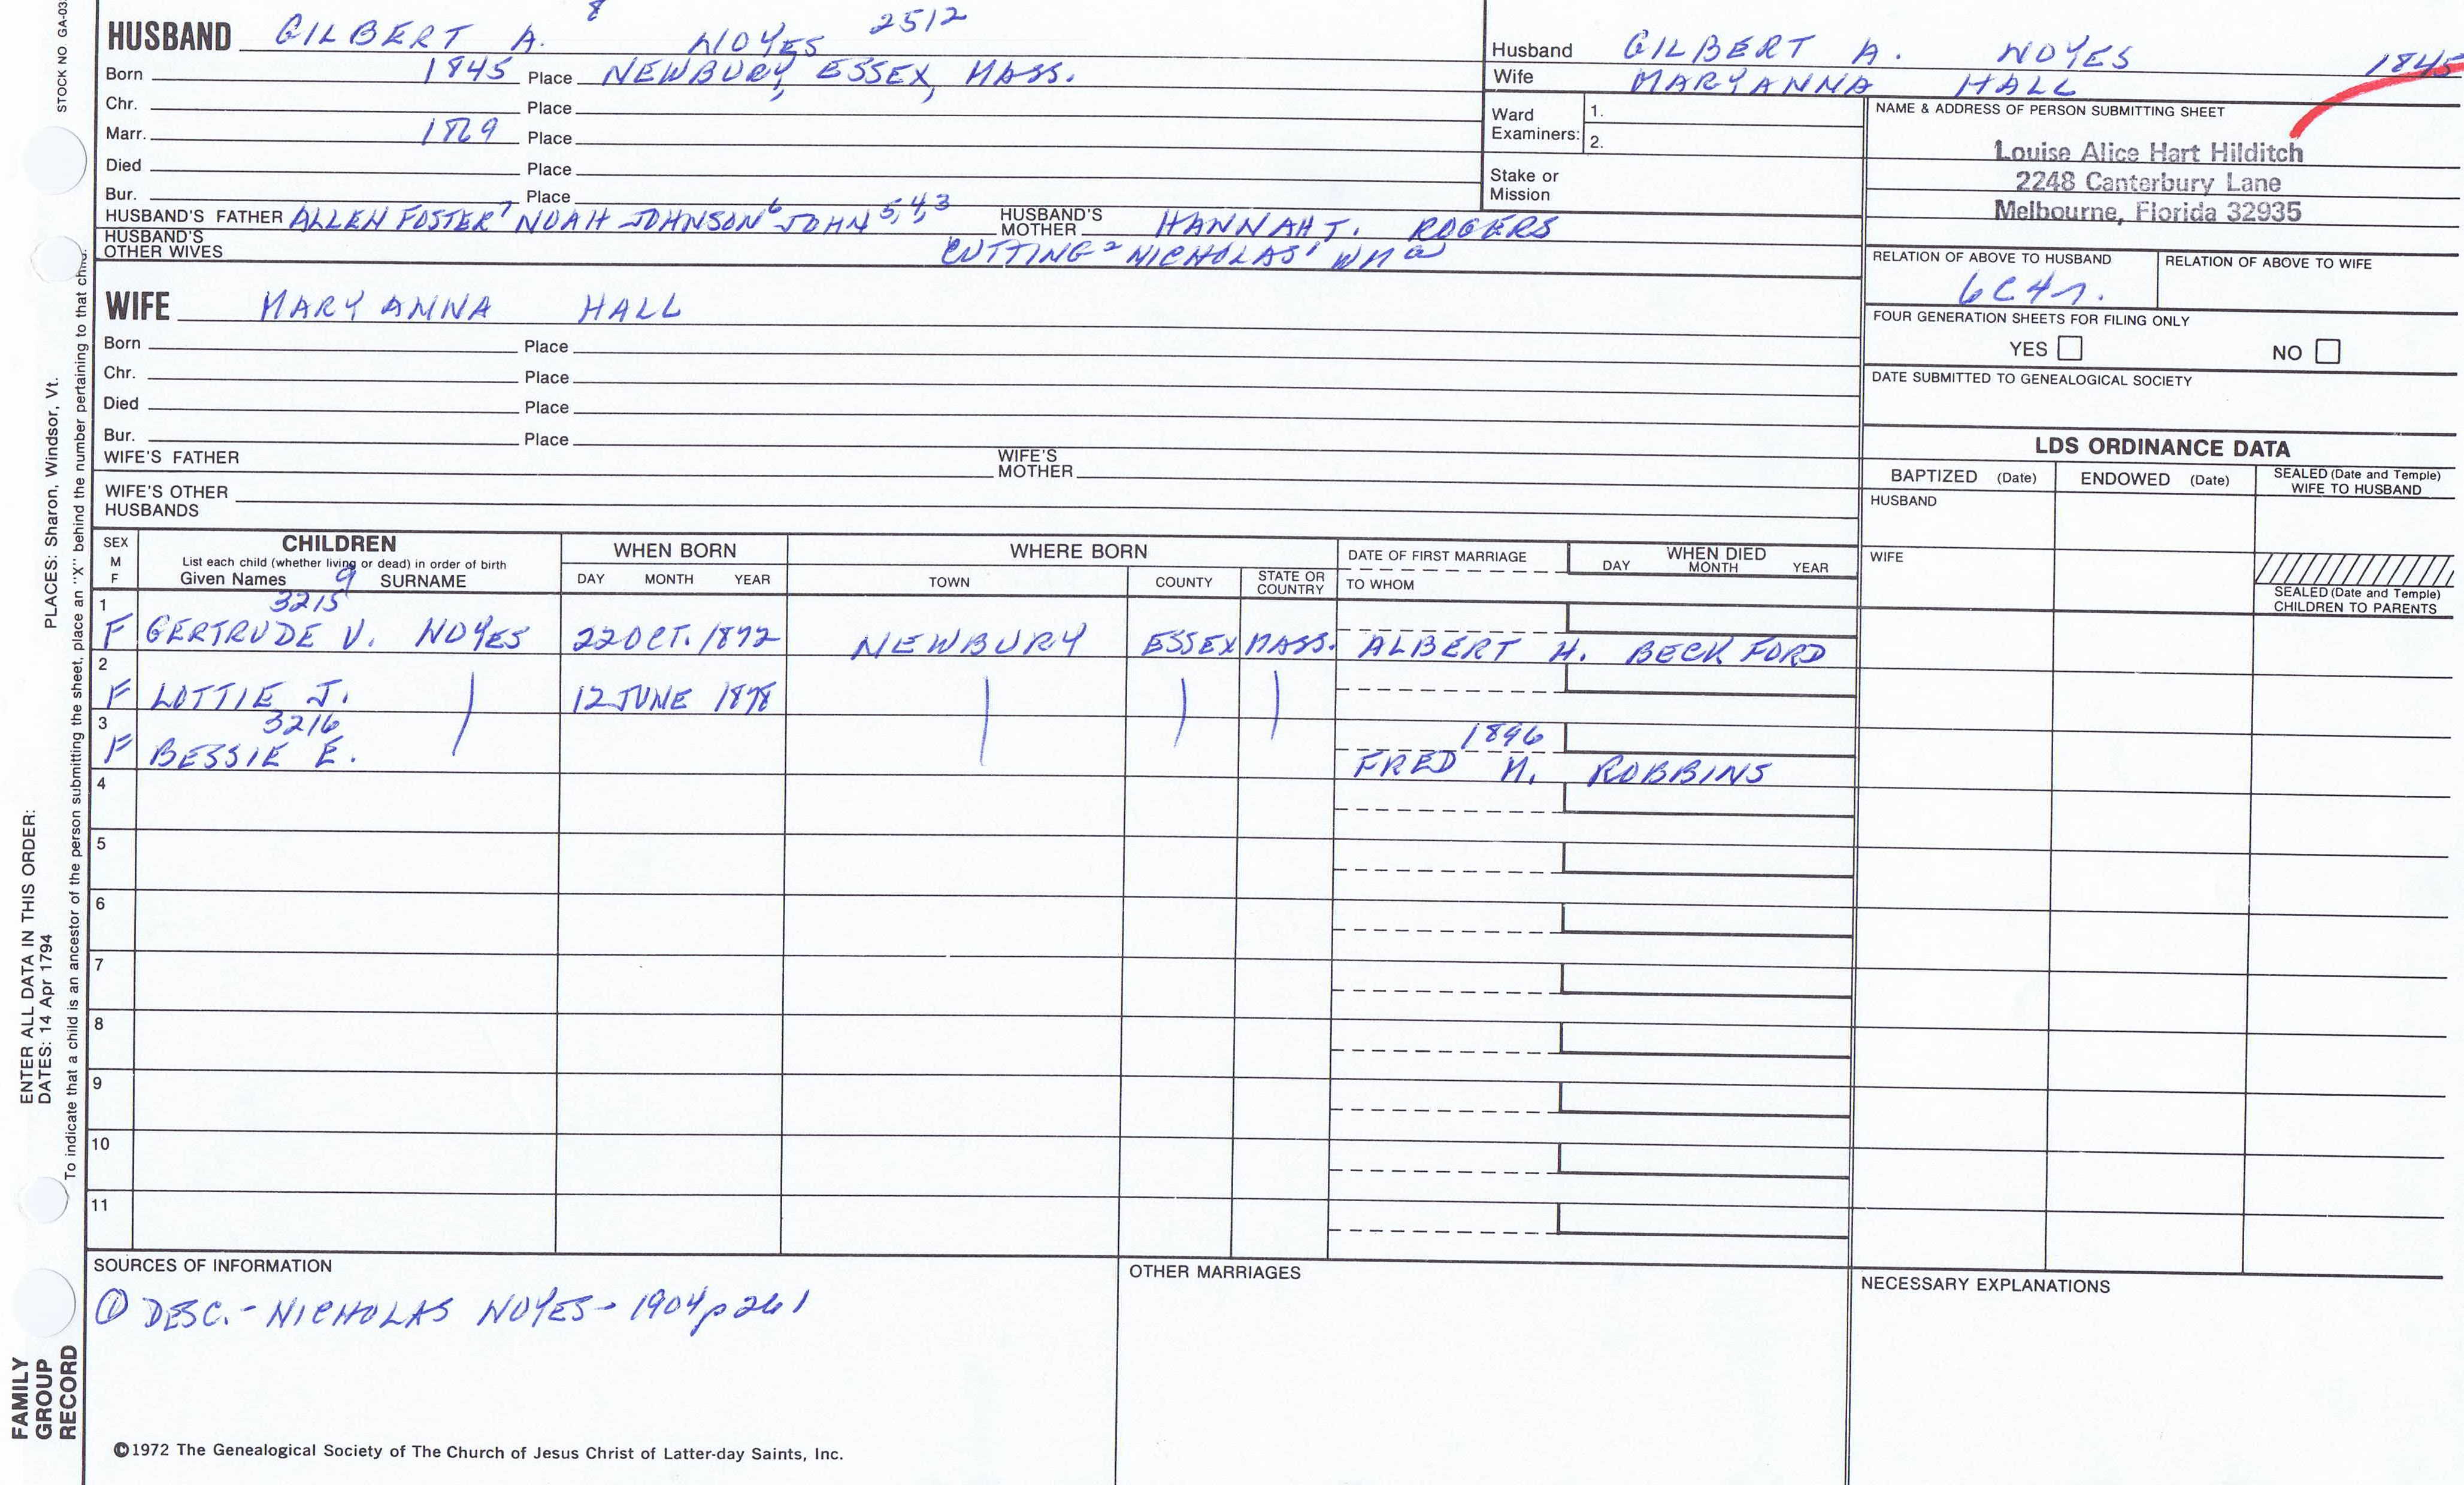 STOCK NO GA-03
8 2512
HUSBAND GILBERT A. NOYES
Born 1845 Place NEWBURY, ESSEX, MASS.
Chr. Place
Marr. 1869 Place
Died Place
Bur. Place
HUSBAND'S FATHER ALLEN FOSTER 7 NOAH JOHNSON 6 JOHN 5,4,3 HUSBAND'S MOTHER HANNAH T. ROGERS
HUSBAND'S OTHER WIVES CUTTING 2 NICHOLAS 1 WM a
WIFE MARY ANNA HALL
Born Place
Chr. Place
Died Place
Bur. Place
WIFE'S FATHER WIFE'S MOTHER
WIFE'S OTHER HUSBANDS
Husband GILBERT A. NOYES 1845
Wife MARY ANNA HALL
Ward Examiners: 1.
2.
Stake or Mission
NAME & ADDRESS OF PERSON SUBMITTING SHEET
Louise Alice Hart Hilditch
2248 Canterbury Lane
Melbourne, Florida 32935
RELATION OF ABOVE TO HUSBAND RELATION OF ABOVE TO WIFE
6C4r.
FOUR GENERATION SHEETS FOR FILING ONLY
YES NO
DATE SUBMITTED TO GENEALOGICAL SOCIETY
LDS ORDINANCE DATA
BAPTIZED (Date) ENDOWED (Date) SEALED (Date and Temple) WIFE TO HUSBAND
HUSBAND
WIFE
SEALED (Date and Temple) CHILDREN TO PARENTS
SEX M F CHILDREN WHEN BORN WHERE BORN DATE OF FIRST MARRIAGE WHEN DIED
List each child (whether living or dead) in order of birth
Given Names 9 SURNAME DAY MONTH YEAR TOWN COUNTY STATE OR COUNTRY TO WHOM DAY MONTH YEAR
1 3215
F GERTRUDE V. NOYES 22 OCT. 1872 NEWBURY ESSEX MASS. ALBERT H. BECKFORD
2
F LOTTIE J. 12 JUNE 1878
3 3216 1896
F BESSIE E. FRED M. ROBBINS
4
5
6
7
8
9
10
11
SOURCES OF INFORMATION
① DESC.- NICHOLAS NOYES- 1904 p 261
OTHER MARRIAGES
NECESSARY EXPLANATIONS
©1972 The Genealogical Society of The Church of Jesus Christ of Latter-day Saints, Inc.
FAMILY
GROUP
RECORD
ENTER ALL DATA IN THIS ORDER:
DATES: 14 Apr 1794
PLACES: Sharon, Windsor, Vt.
To indicate that a child is an ancestor of the person submitting the sheet, place an "X" behind the number pertaining to that child.